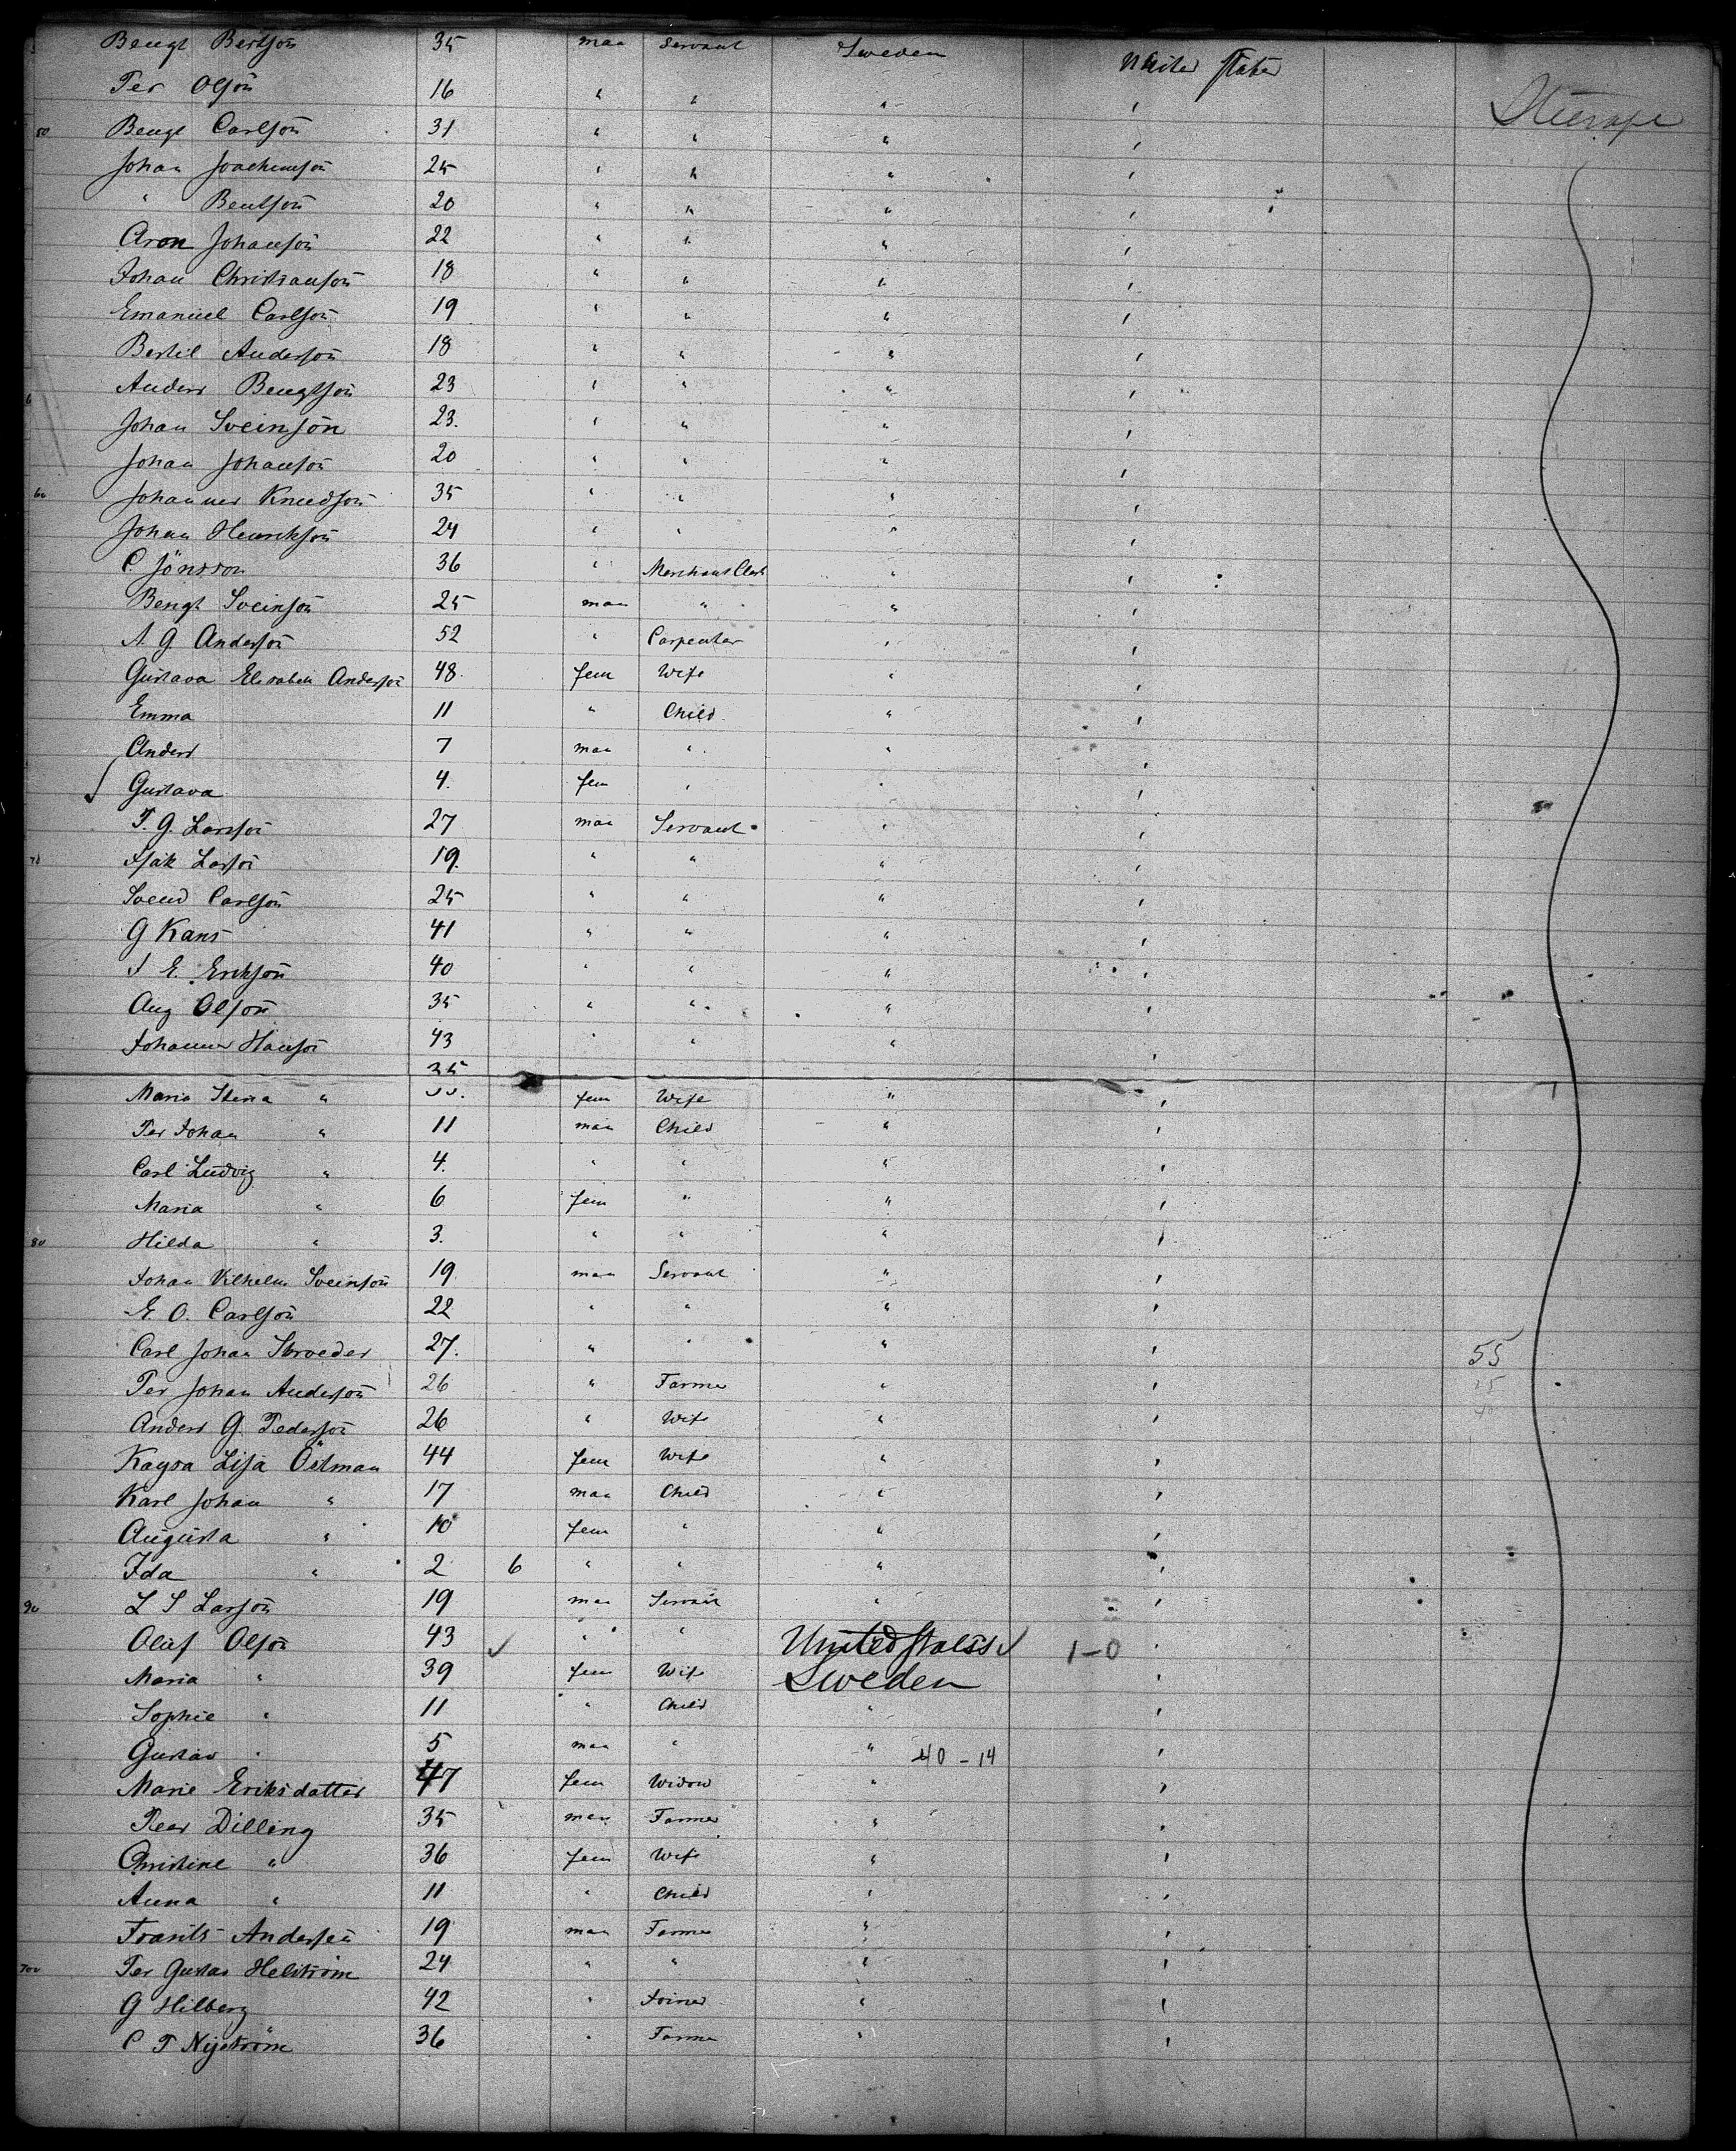 Bengt Bertson 35 man Servant Sweden United States
Per Olson 16 " " " " Steerage
50 Bengt Carlson 31 " " " "
Johan Joachimson 25 " " " "
" Bentson 20 " " " "
Aron Johanson 22 " " " "
Johan Christianson 18 " " " "
Emanuel Carlson 19 " " " "
Bertil Anderson 18 " " " "
Anders Bengtson 23 " " " "
Johan Sveinson 23. " " " "
Johan Johanson 20 " " " "
60 Johannes Knudson 35 " " " "
Johan Henrikson 24 " " " "
C. Jönsson 36 " Merchant Clerk " "
Bengt Sveinson 25 man " " "
A. G. Anderson 52 " Carpenter " "
Gustava Elisabeth Anderson 48. fem Wife " "
Emma 11 " Child " "
Anders 7 man " " "
Gustava 4. fem " " "
P. G. Larsson 27 man Servant " "
70 Isak Larson 19. " " " "
Svend Carlson 25 " " " "
G Kans 41 " " " "
J E. Erikson 40 " " " "
Aug Olson 35 " " " "
Johannes Hanson 43 " " " "
35
Maria Stina " 35. fem Wife " "
Per Johan " 11 man Child " "
Carl Ludvig " 4. " " " "
Maria " 6 fem " " "
80 Hilda " 3. " " " "
Johan Vilhelm Sveinson 19 man Servant " "
E. O. Carlson 22 " " " "
Carl Johan Stroeder 27. " " " " 55
Per Johan Anderson 26 " Farmer " " 15
Anders G. Pederson 26 " Wife " " 40
Kaysa Lisa Östman 44 fem Wife " "
Karl Johan " 17 man Child " "
Augusta " 10 fem " " "
Ida " 2 6 " " " "
90 L S Larson 19 man Servant " "
Oluf Olson 43 " " United States 1-0 "
Maria " 39 fem Wife Sweden "
Sophie " 11 " Child " "
Gustav " 5 man " " 40-14 "
Marie Eriksdatter 47 fem Widow " "
Peer Dilling 35 man Farmer " "
Christine " 36 fem Wife " "
Anna " 11 " Child " "
Frants Andersen 19 man Farmer " "
700 Per Gustav Helström 24 " " " "
G Hilberg 42 " Joiner " "
C F Nyström 36 " Farmer " "